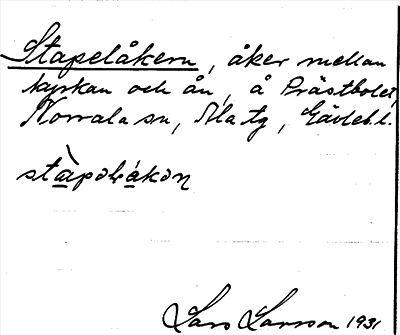 Stapelåkern, åker mellan
kyrkan och ån, å Prästbolet,
Norrala sn, Ala tg, Gävleb. l.
stàpolákon
Lars Larsson 1931